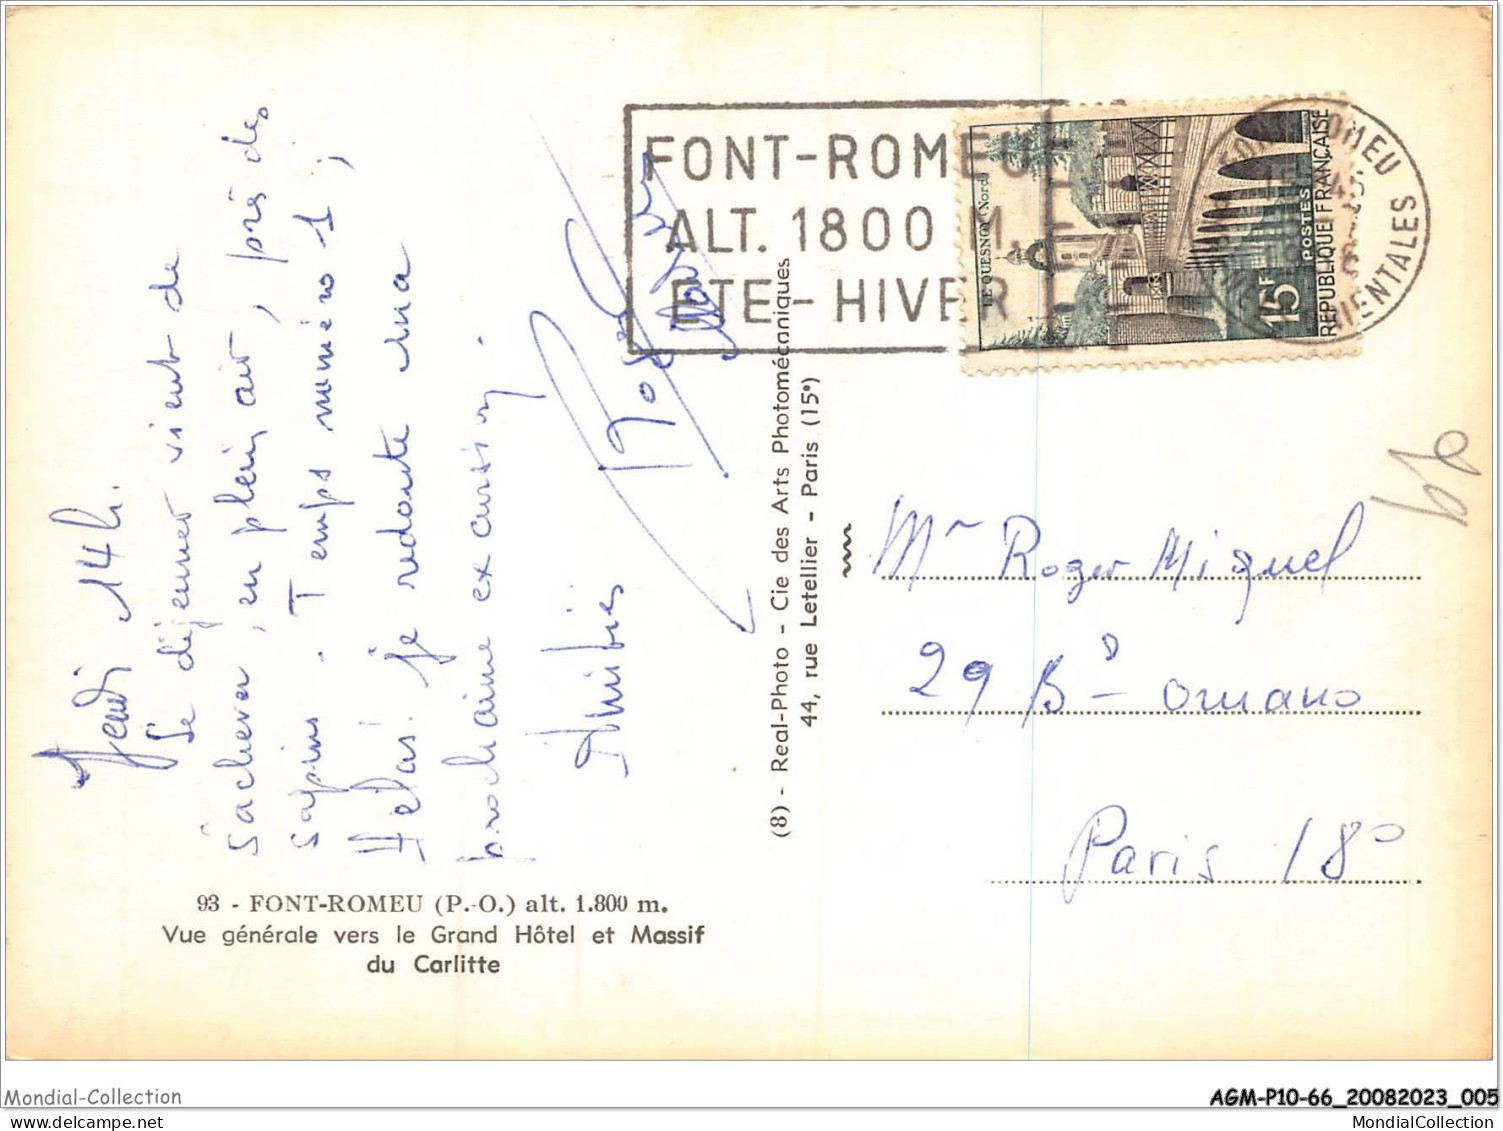 Jeudi 14 h.
Le déjeuner vient de
s'achever, en plein air, près des
sapins. Temps numéro 1;
Hélas! je redoute ma
prochaine excursion.
Amitiés
93 - FONT-ROMEU (P.-O.) alt. 1.800 m.
Vue générale vers le Grand Hôtel et Massif
du Carlitte
(8) - Real-Photo - Cie des Arts Photomécaniques
44, rue Letellier - Paris (15e)
FONT-ROMEU
ALT. 1800 M.
ETE - HIVER
LE QUESNOY (Nord)
15F
POSTES
REPUBLIQUE FRANÇAISE
FONT ROMEU
ORIENTALES
Mr Roger Miquel
29 Bd Ornano
Paris 18o
Mondial-Collection
AGM-P10-66_20082023_005
MondialCollection
MondialCollection